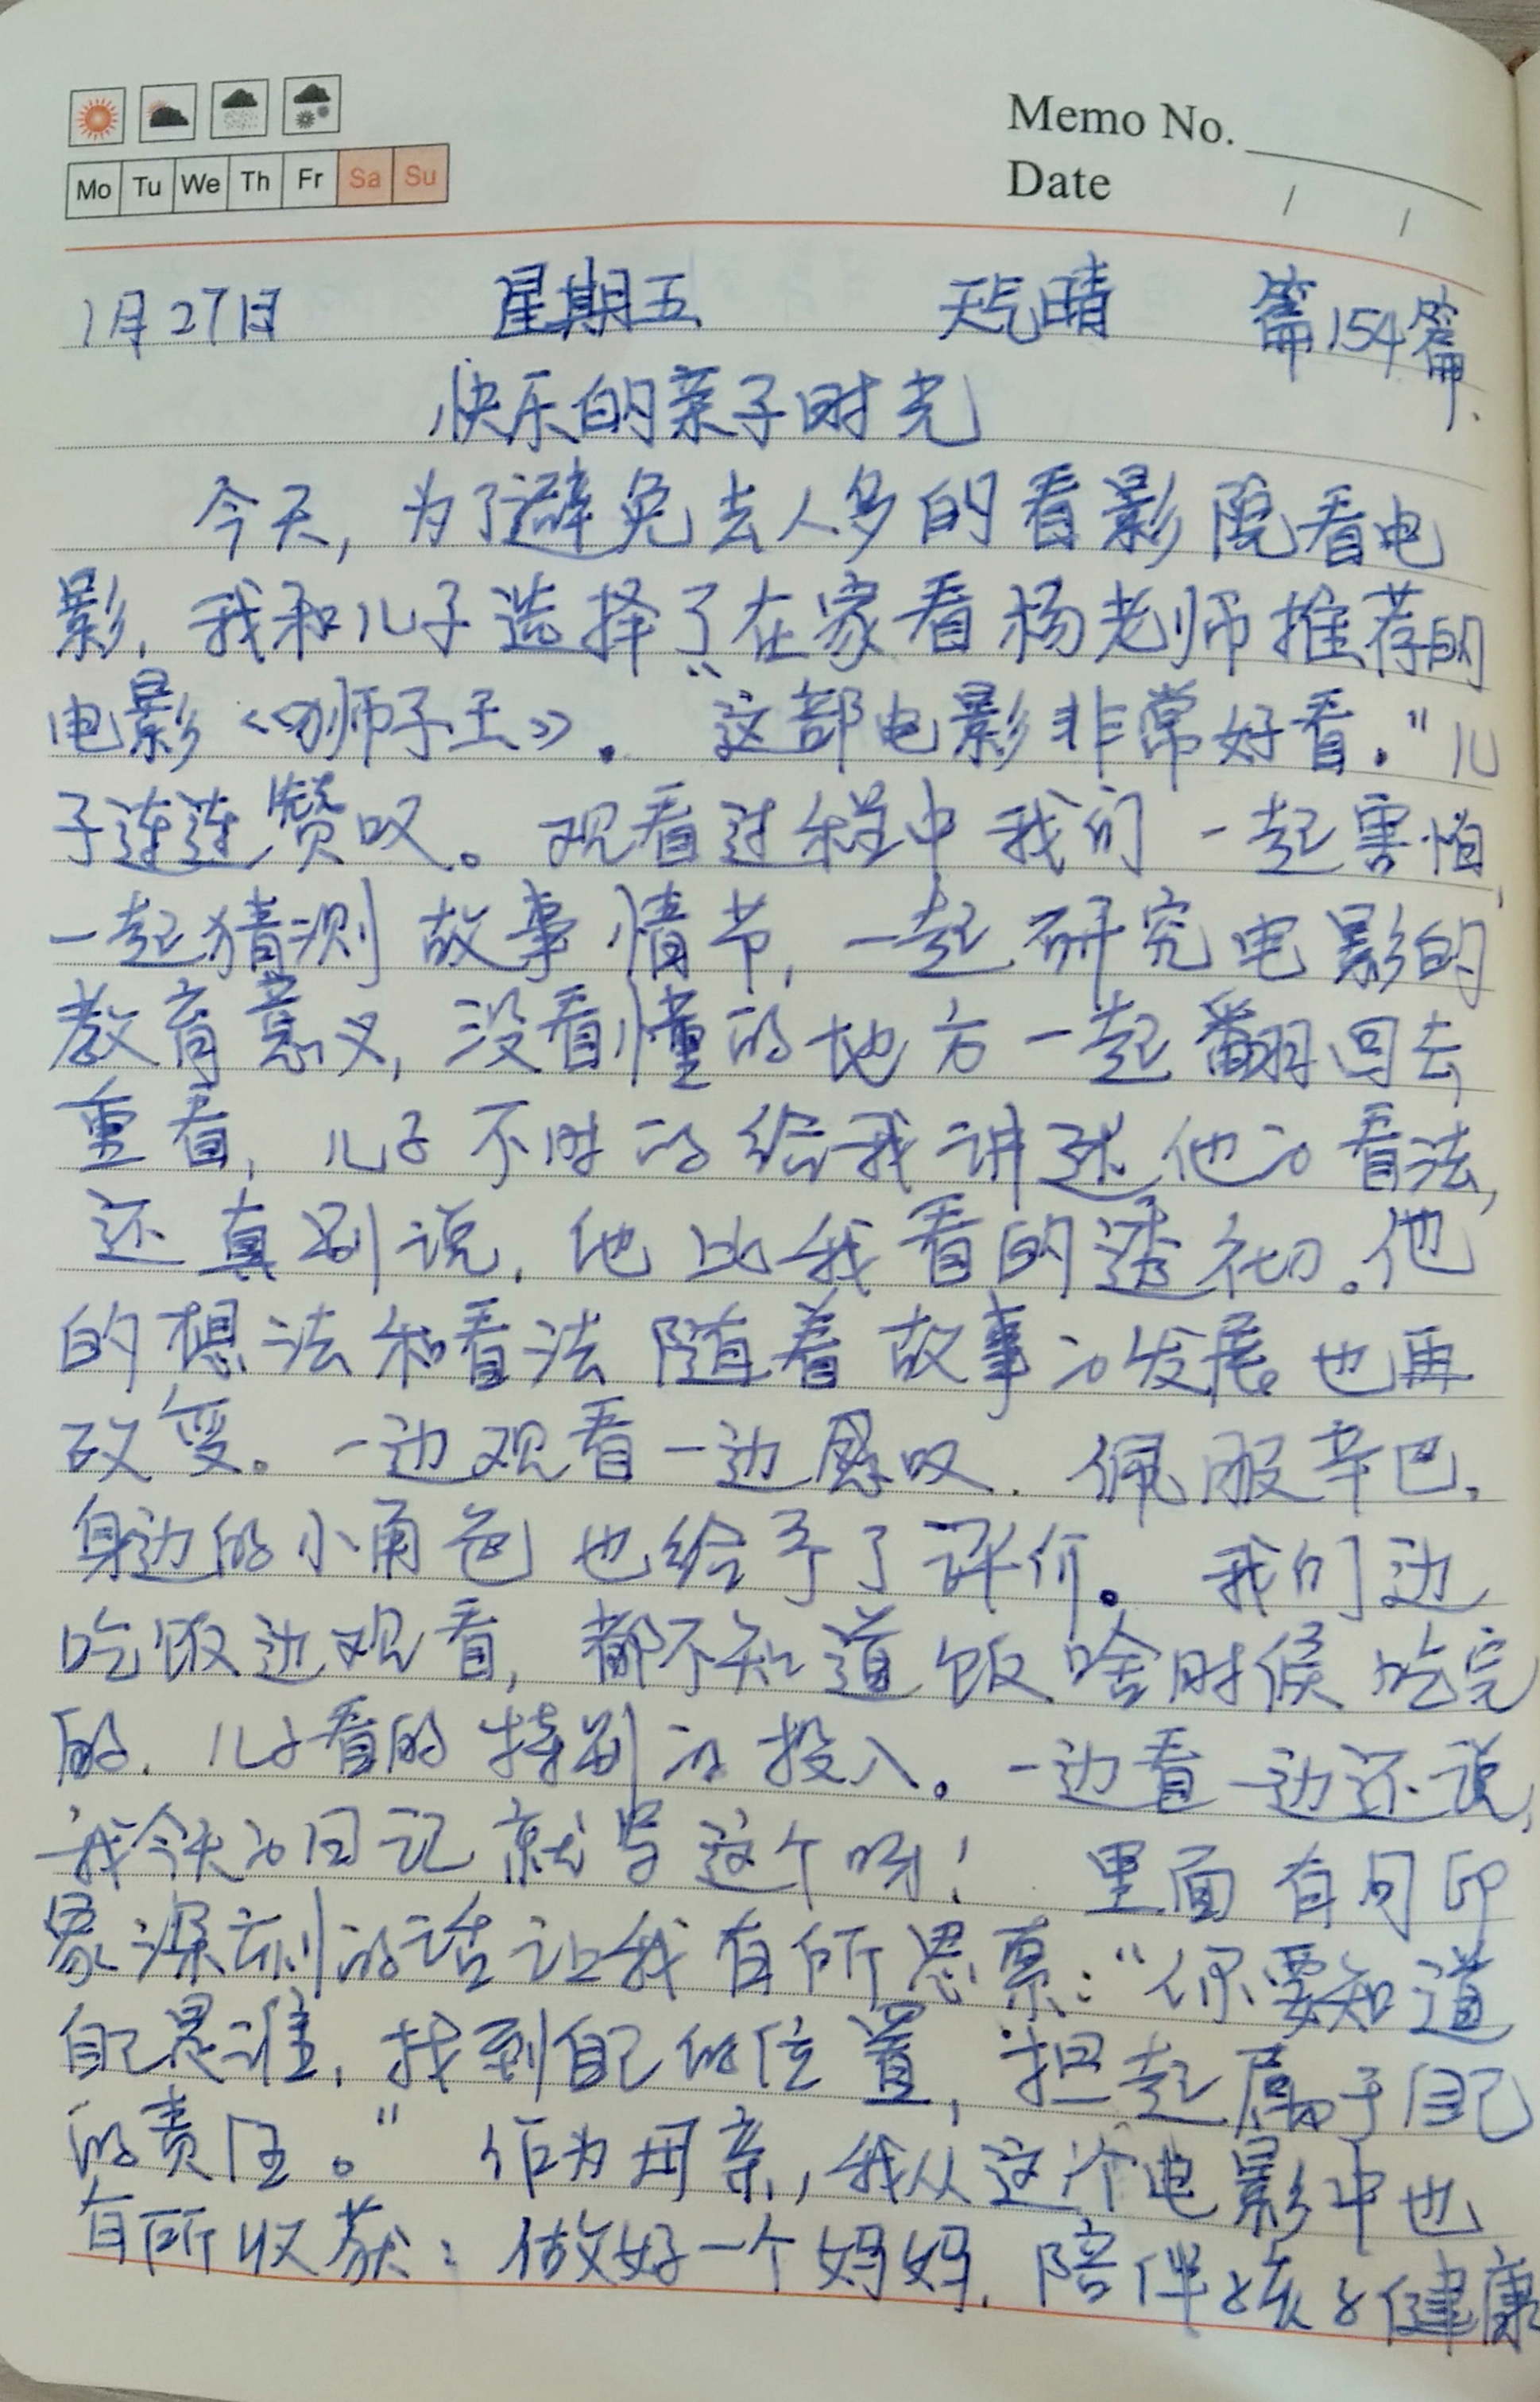 Memo No.
Mo Tu We Th Fr Sa Su
Date / /
1月27日 星期五 天气晴 篇154篇.
快乐的亲子时光
今天,为了避免去人多的看影院看电
影,我和儿子选择了在家看杨老师推荐的
电影《狮子王》。“这部电影非常好看。”儿
子连连赞叹。观看过程中我们一起害怕,
一起猜测故事情节,一起研究电影的
教育意义,没看懂的地方一起翻回去
重看,儿子不时的给我讲述他的看法,
还真别说,他比我看的透彻。他
的想法和看法随着故事的发展也再
改变。一边观看一边感叹.佩服辛巴,
身边的小角色也给予了评价。我们边
吃饭边观看,都不知道饭啥时候吃完
的.儿子看的特别的投入。一边看一边还说,
我今天的日记就写这个呀!里面有句印
象深刻的话让我有所思索:“你要知道
自己是谁,找到自己的位置,担起属于自己
的责任。”作为母亲,我从这个电影中也
有所收获:做好一个妈妈.陪伴孩子健康